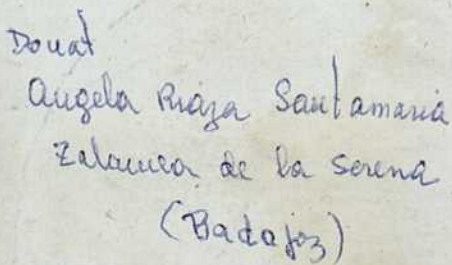 Donat
Angela Riaza Santamaria
Zalamea de la Serena
(Badajoz)